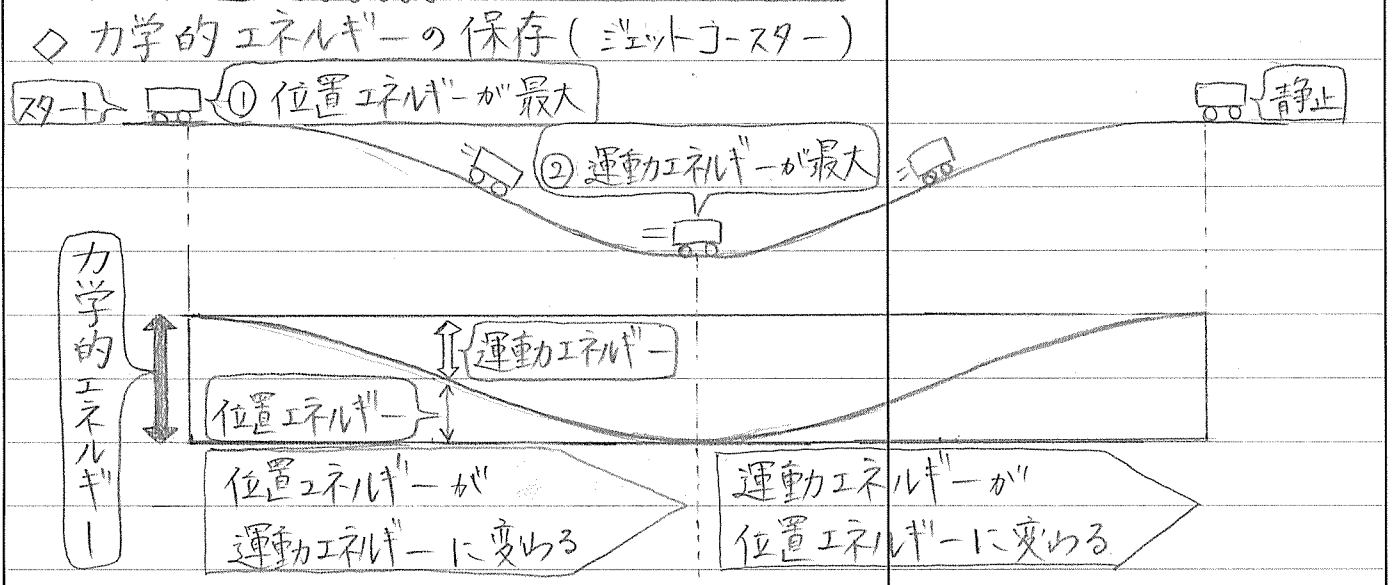 ◇ 力学的エネルギーの保存(ジェットコースター)
スタート
① 位置エネルギーが最大
静止
② 運動エネルギーが最大
力学的エネルギー
運動エネルギー
位置エネルギー
位置エネルギーが
運動エネルギーに変わる
運動エネルギーが
位置エネルギーに変わる